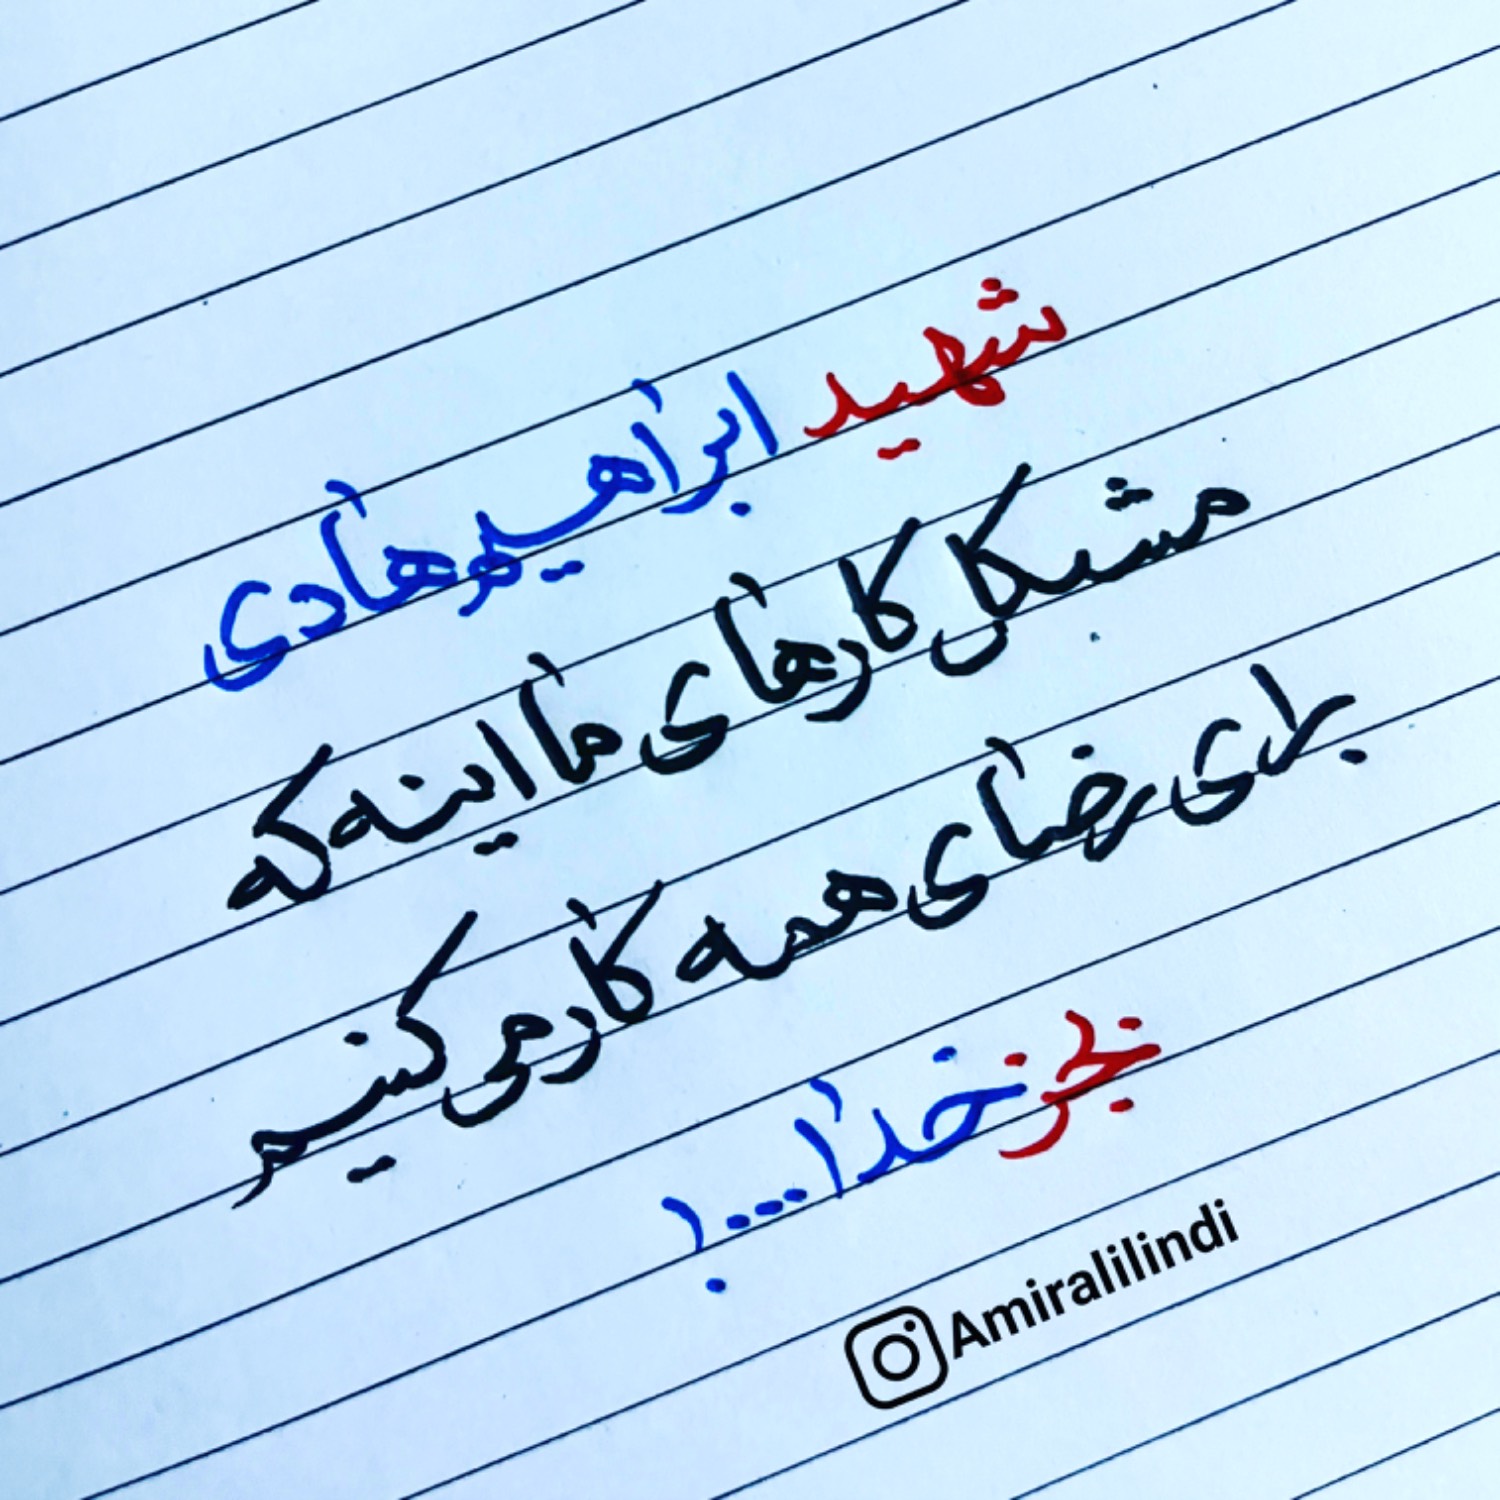 شهید ابراهیم هادی
مشکل کارهای ما اینه که
برای رضای همه کار می کنیم
بجز خدا...!
Amiralilindi